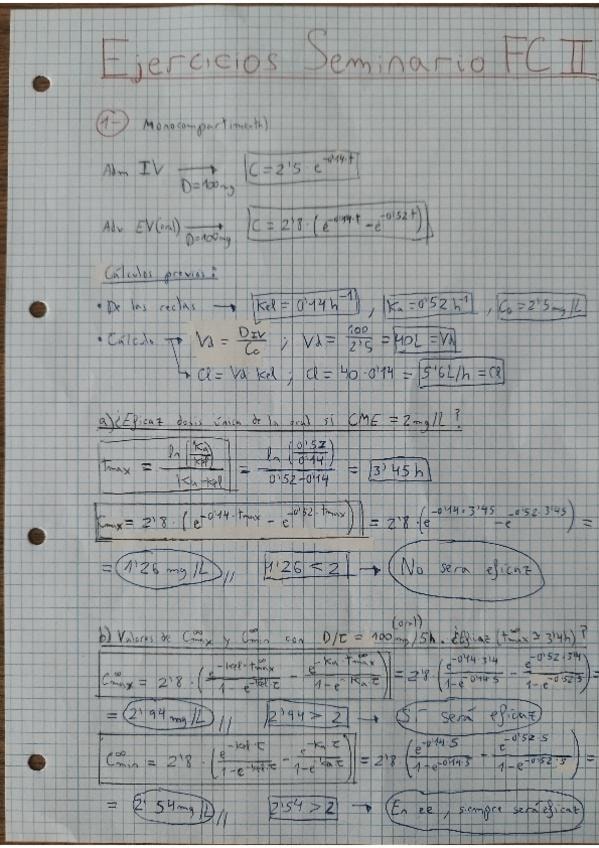 Ejercicios Seminario FC II
1- Monocompartimental
Adm IV → D=100mg C = 2'5 e^-0'14·t
Adm EV(oral) → D=100mg C = 2'8·(e^-0'14·t - e^-0'52t)
Cálculos previos:
• De las rectas → Kel = 0'14h^-1, Ka = 0'52h^-1, C₀ = 2'5mg/L
• Cálculo → Vd = D_IV/C₀ ; Vd = 100/2'5 = 40L = Vd
→ Cl = Vd·Kel ; Cl = 40·0'14 = 5'6L/h = Cl
a) ¿Eficaz dosis única de la oral si CME = 2mg/L?
tmax = ln(Ka/Kel)/(Ka-Kel) = ln(0'52/0'14)/(0'52-0'14) = 3'45h
Cmax = 2'8·(e^-0'14·tmax - e^-0'52·tmax) = 2'8·(e^-0'14·3'45 - e^-0'52·3'45) =
= 1'26 mg/L // 1'26 < 2 → No sera eficaz
(oral)
b) Valores de C^∞max y C^∞min con D/τ = 100mg/5h. ¿Eficaz (t^∞max = 3'4h)?
C^∞max = 2'8·(e^-kel·t^∞max/(1-e^-kel·τ) - e^-Ka·t^∞max/(1-e^-Ka·τ)) = 2'8·(e^-0'14·3'4/(1-e^-0'14·5) - e^-0'52·3'4/(1-e^-0'52·5)) =
= 2'94mg/L // 2'94 > 2 → Sí será eficaz
C^∞min = 2'8·(e^-kel·τ/(1-e^-kel·τ) - e^-Ka·τ/(1-e^-Ka·τ)) = 2'8(e^-0'14·5/(1-e^-0'14·5) - e^-0'52·5/(1-e^-0'52·5)) =
= 2'54mg/L // 2'54 > 2 → En ee, siempre será eficaz